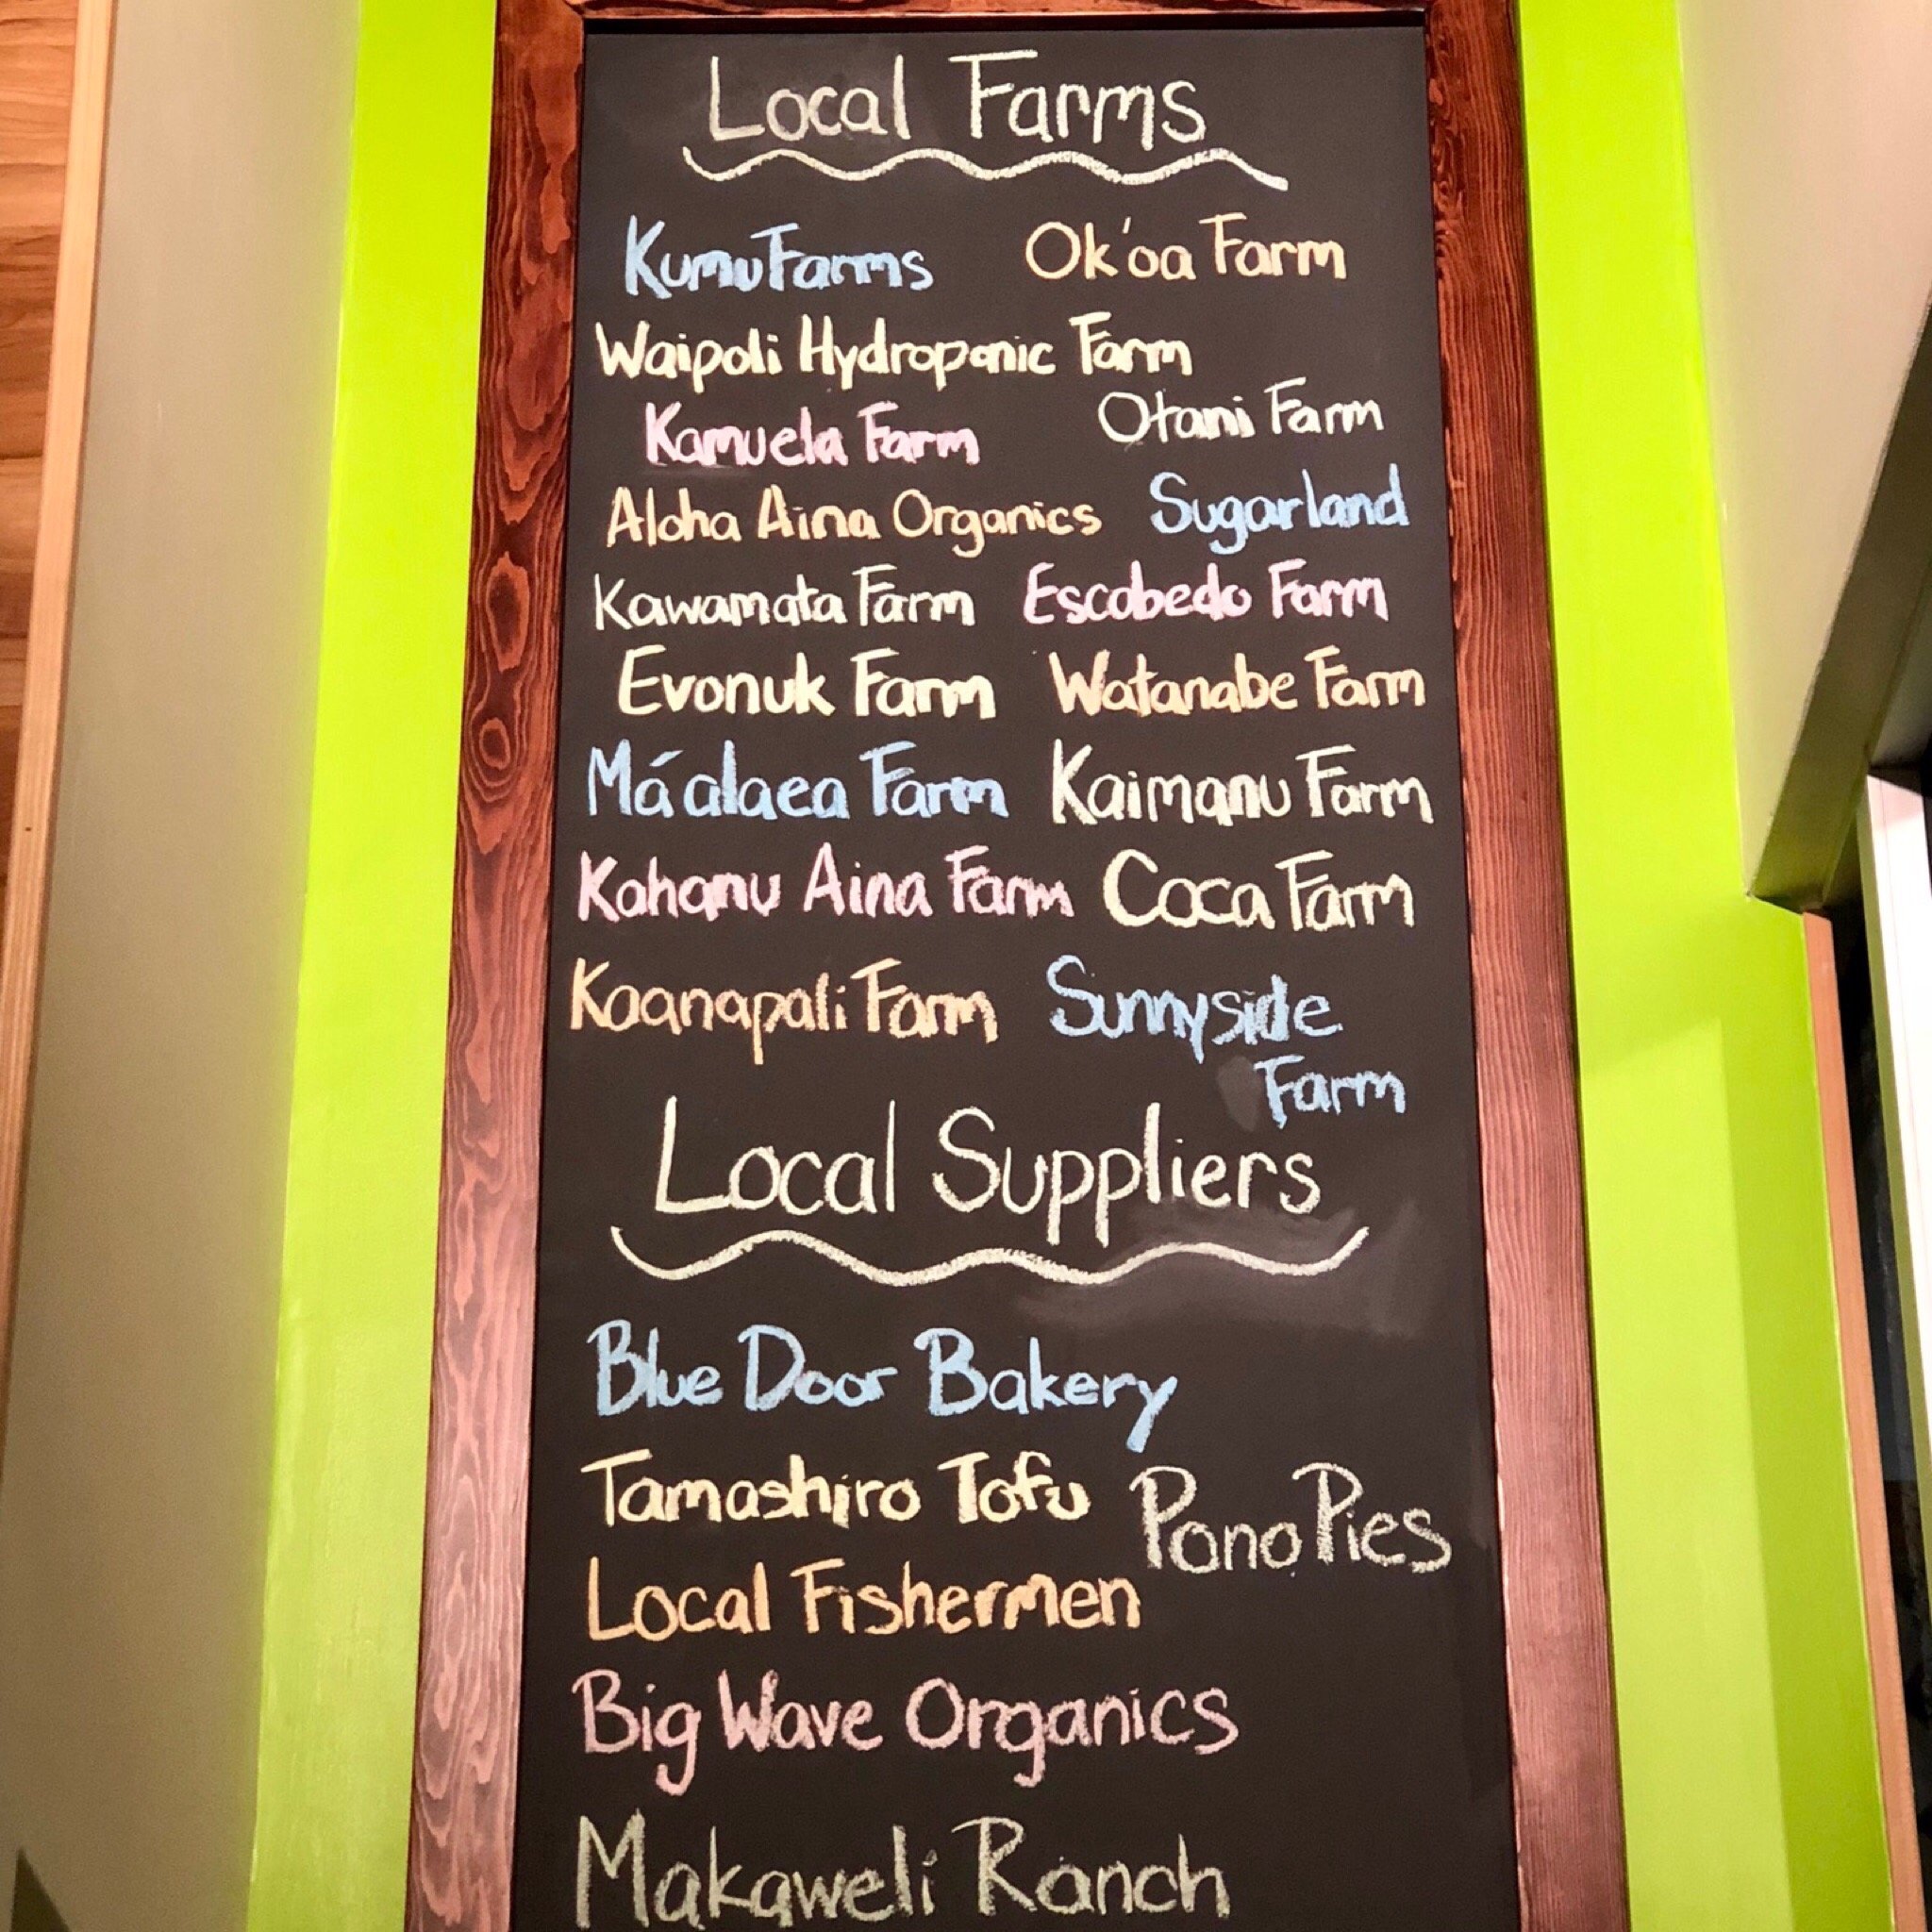 Local Farms
Kumu Farms Ok'oa Farm
Waipoli Hydroponic Farm
Kamuela Farm Otani Farm
Aloha Aina Organics Sugarland
Kawamata Farm Escobedo Farm
Evonuk Farm Watanabe Farm
Má alaea Farm Kaimanu Farm
Kahanu Aina Farm Coca Farm
Kaanapali Farm Sunnyside
Farm
Local Suppliers
Blue Door Bakery
Tamashiro Tofu Pono Pies
Local Fishermen
Big Wave Organics
Makaweli Ranch